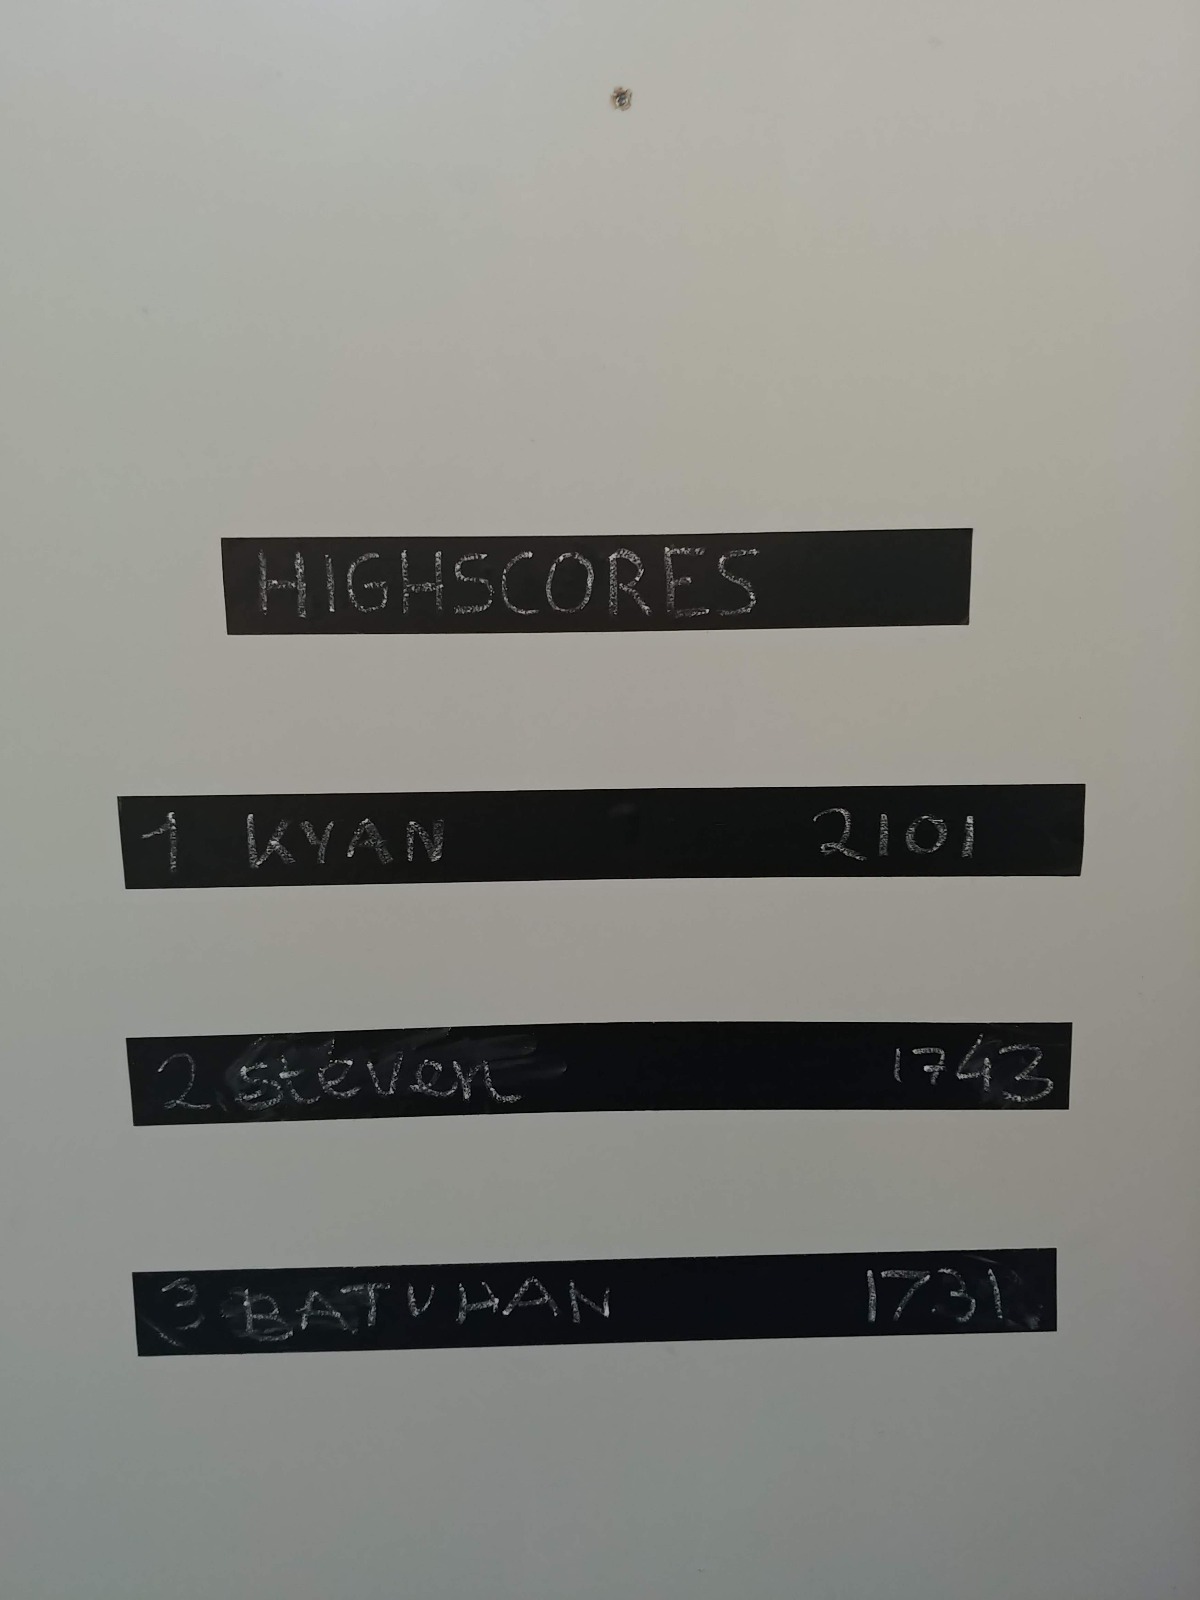 HIGHSCORES
1 KYAN 2101
2. steven 1743
3 BATUHAN 1731